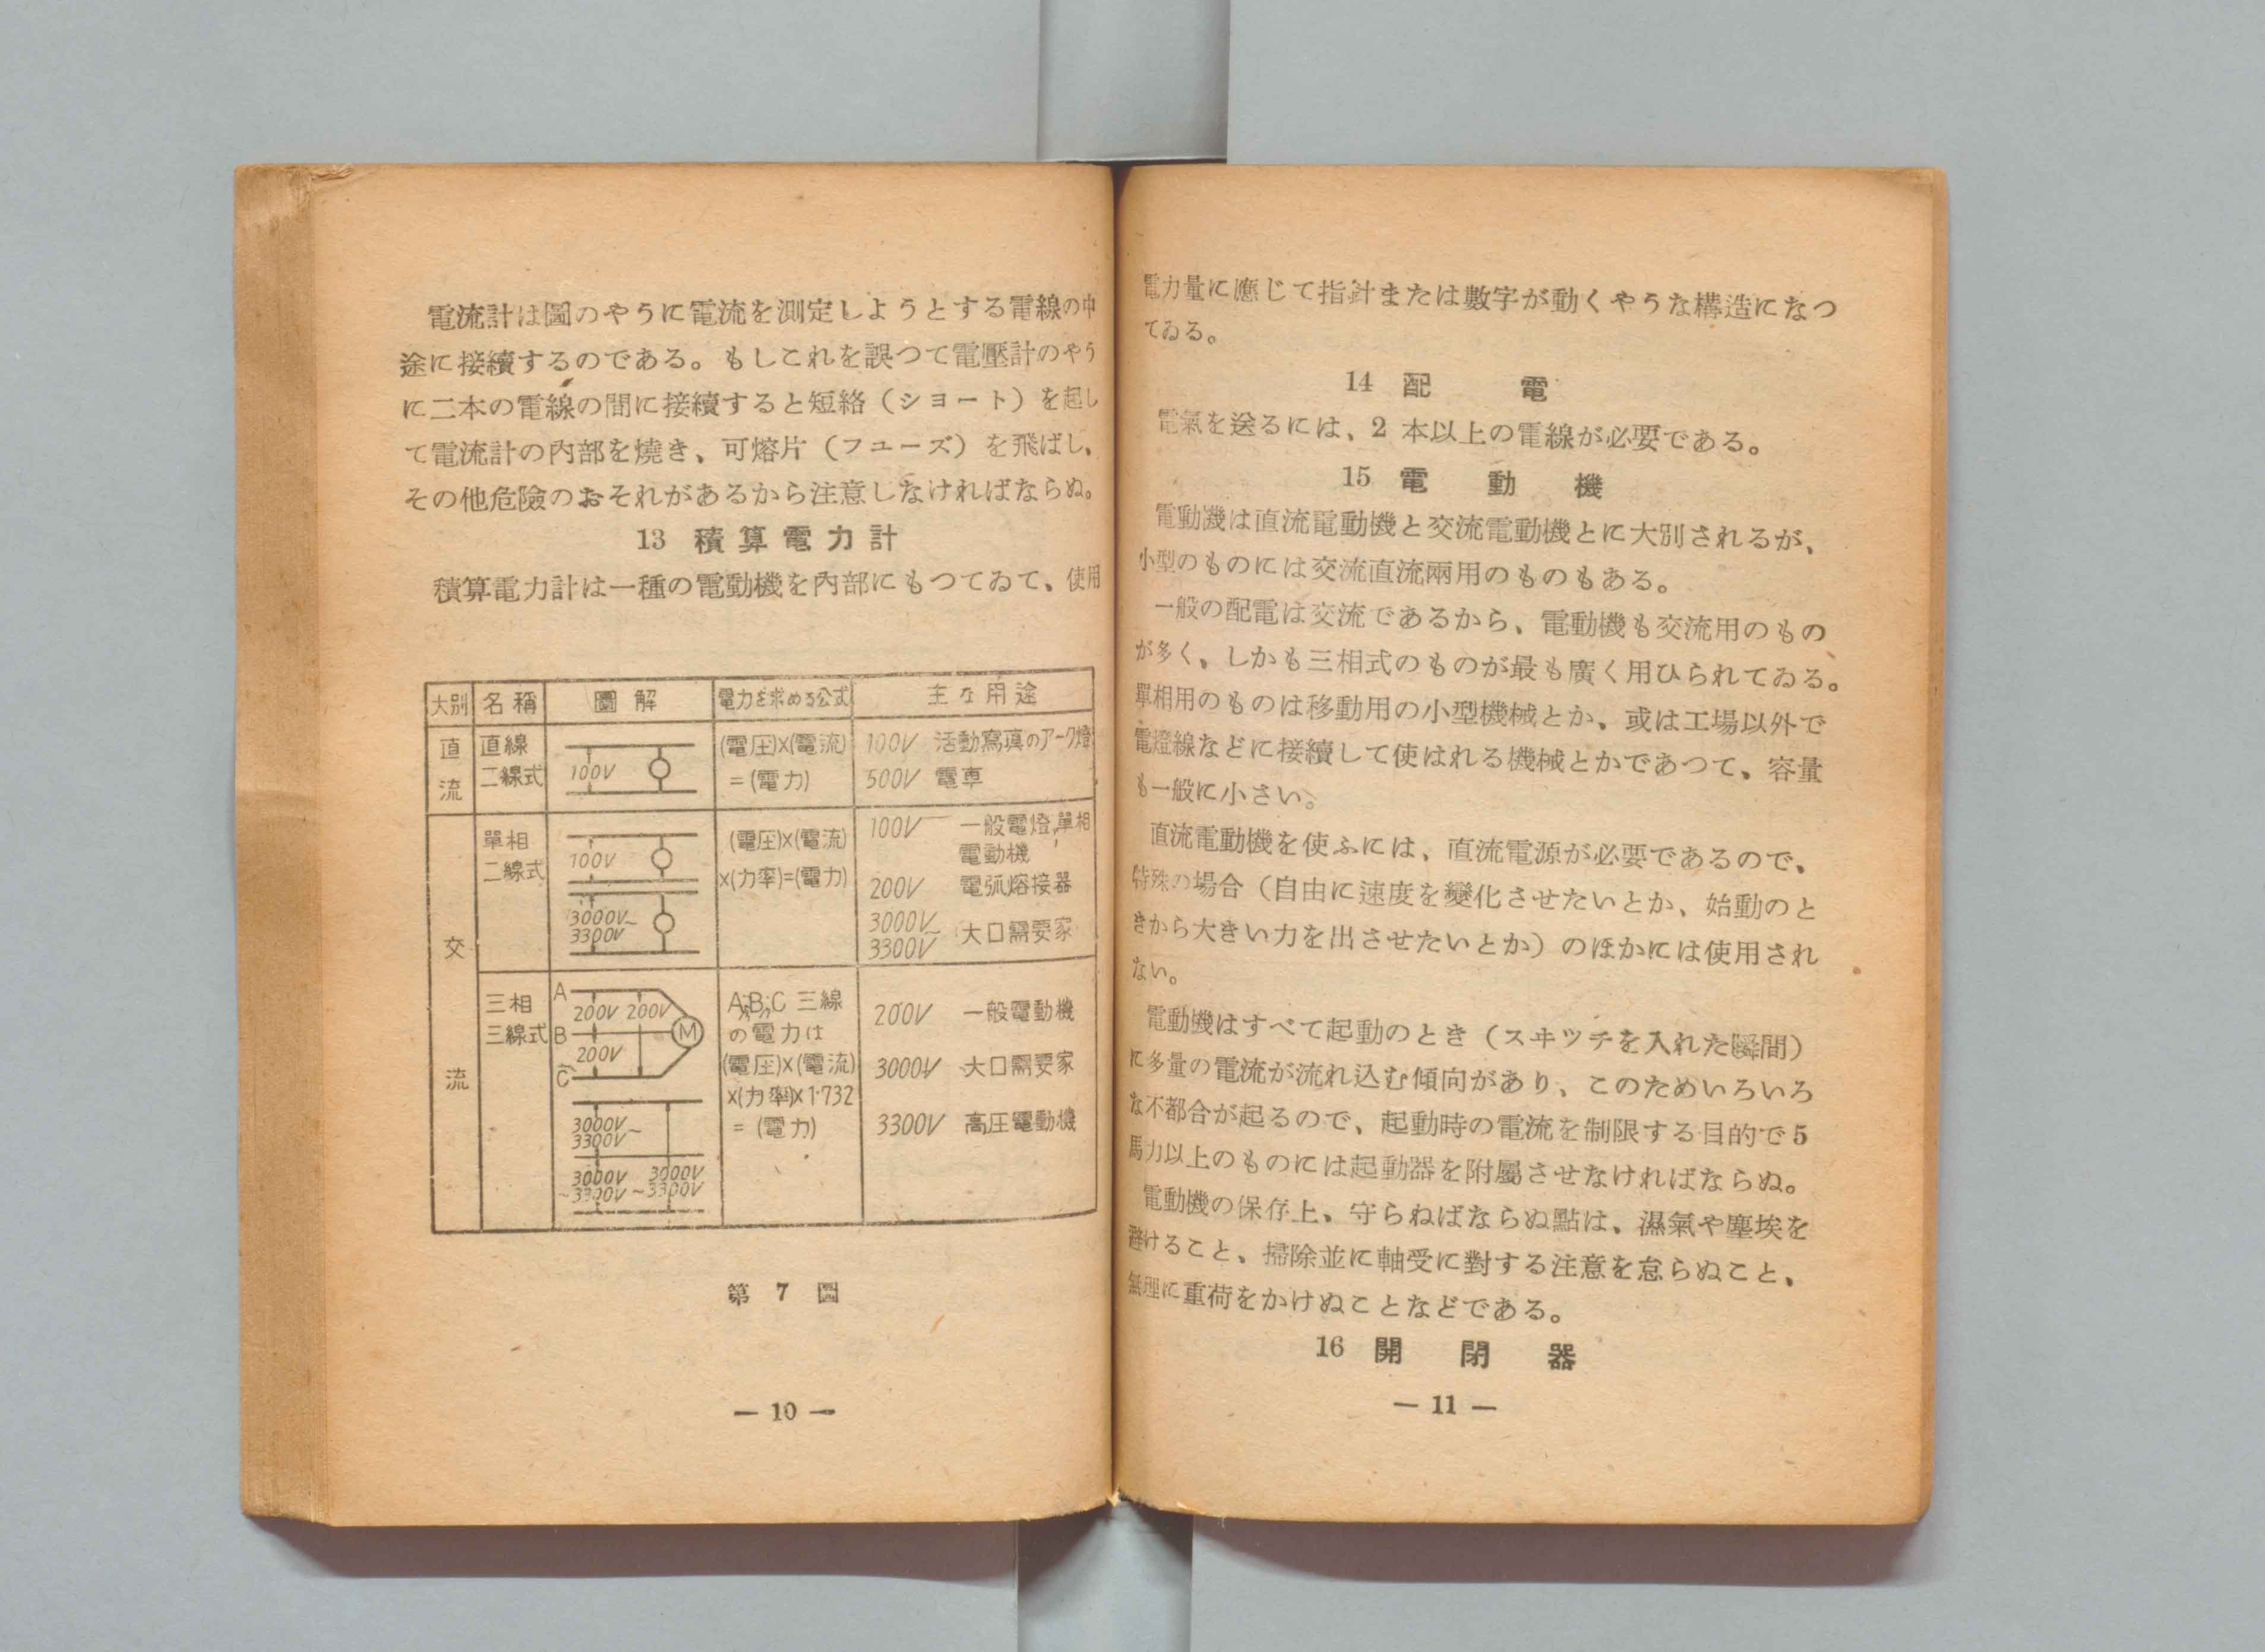 電流計は圖のやうに電流を測定しようとする電線の中
途に接續するのである。もしこれを誤つて電壓計のやう
に二本の電線の間に接續すると短絡（ショート）を起し
て電流計の内部を燒き、可熔片（フユーズ）を飛ばし、
その他危險のおそれがあるから注意しなければならぬ。
13 積算電力計
積算電力計は一種の電動機を内部にもつてゐて、使用
大別 名稱 圖解 電力を求める公式 主な用途
直流
直線
二線式
100V
(電圧)×(電流)
=(電力)
100V 活動寫真のアーク燈
500V 電車
交流
單相
二線式
100V
3000V~
3300V
(電圧)×(電流)
×(力率)=(電力)
100V 一般電燈,單相
電動機
200V 電弧熔接器
3000V~
3300V 大口需要家
三相
三線式
A
200V 200V
B
M
200V
C
3000V~
3300V~
3000V 3000V
~3300V ~3300V
A,B,C 三線
の電力は
(電圧)×(電流)
×(力率)×1.732
= (電力)
200V 一般電動機
3000V 大口需要家
3300V 高圧電動機
第 7 圖
— 10 —
電力量に應じて指針または數字が動くやうな構造になつ
てゐる。
14 配電
電氣を送るには、2 本以上の電線が必要である。
15 電動機
電動機は直流電動機と交流電動機とに大別されるが、
小型のものには交流直流兩用のものもある。
一般の配電は交流であるから、電動機も交流用のもの
が多く、しかも三相式のものが最も廣く用ひられてゐる。
單相用のものは移動用の小型機械とか、或は工場以外で
電燈線などに接續して使はれる機械とかであつて、容量
も一般に小さい。
直流電動機を使ふには、直流電源が必要であるので、
特殊の場合（自由に速度を變化させたいとか、始動のと
きから大きい力を出させたいとか）のほかには使用され
ない。
電動機はすべて起動のとき（スヰツチを入れた瞬間）
に多量の電流が流れ込む傾向があり、このためいろいろ
な不都合が起るので、起動時の電流を制限する目的で5
馬力以上のものには起動器を附屬させなければならぬ。
電動機の保存上、守らねばならぬ點は、濕氣や塵埃を
避けること、掃除並に軸受に對する注意を怠らぬこと、
無理に重荷をかけぬことなどである。
16 開閉器
— 11 —